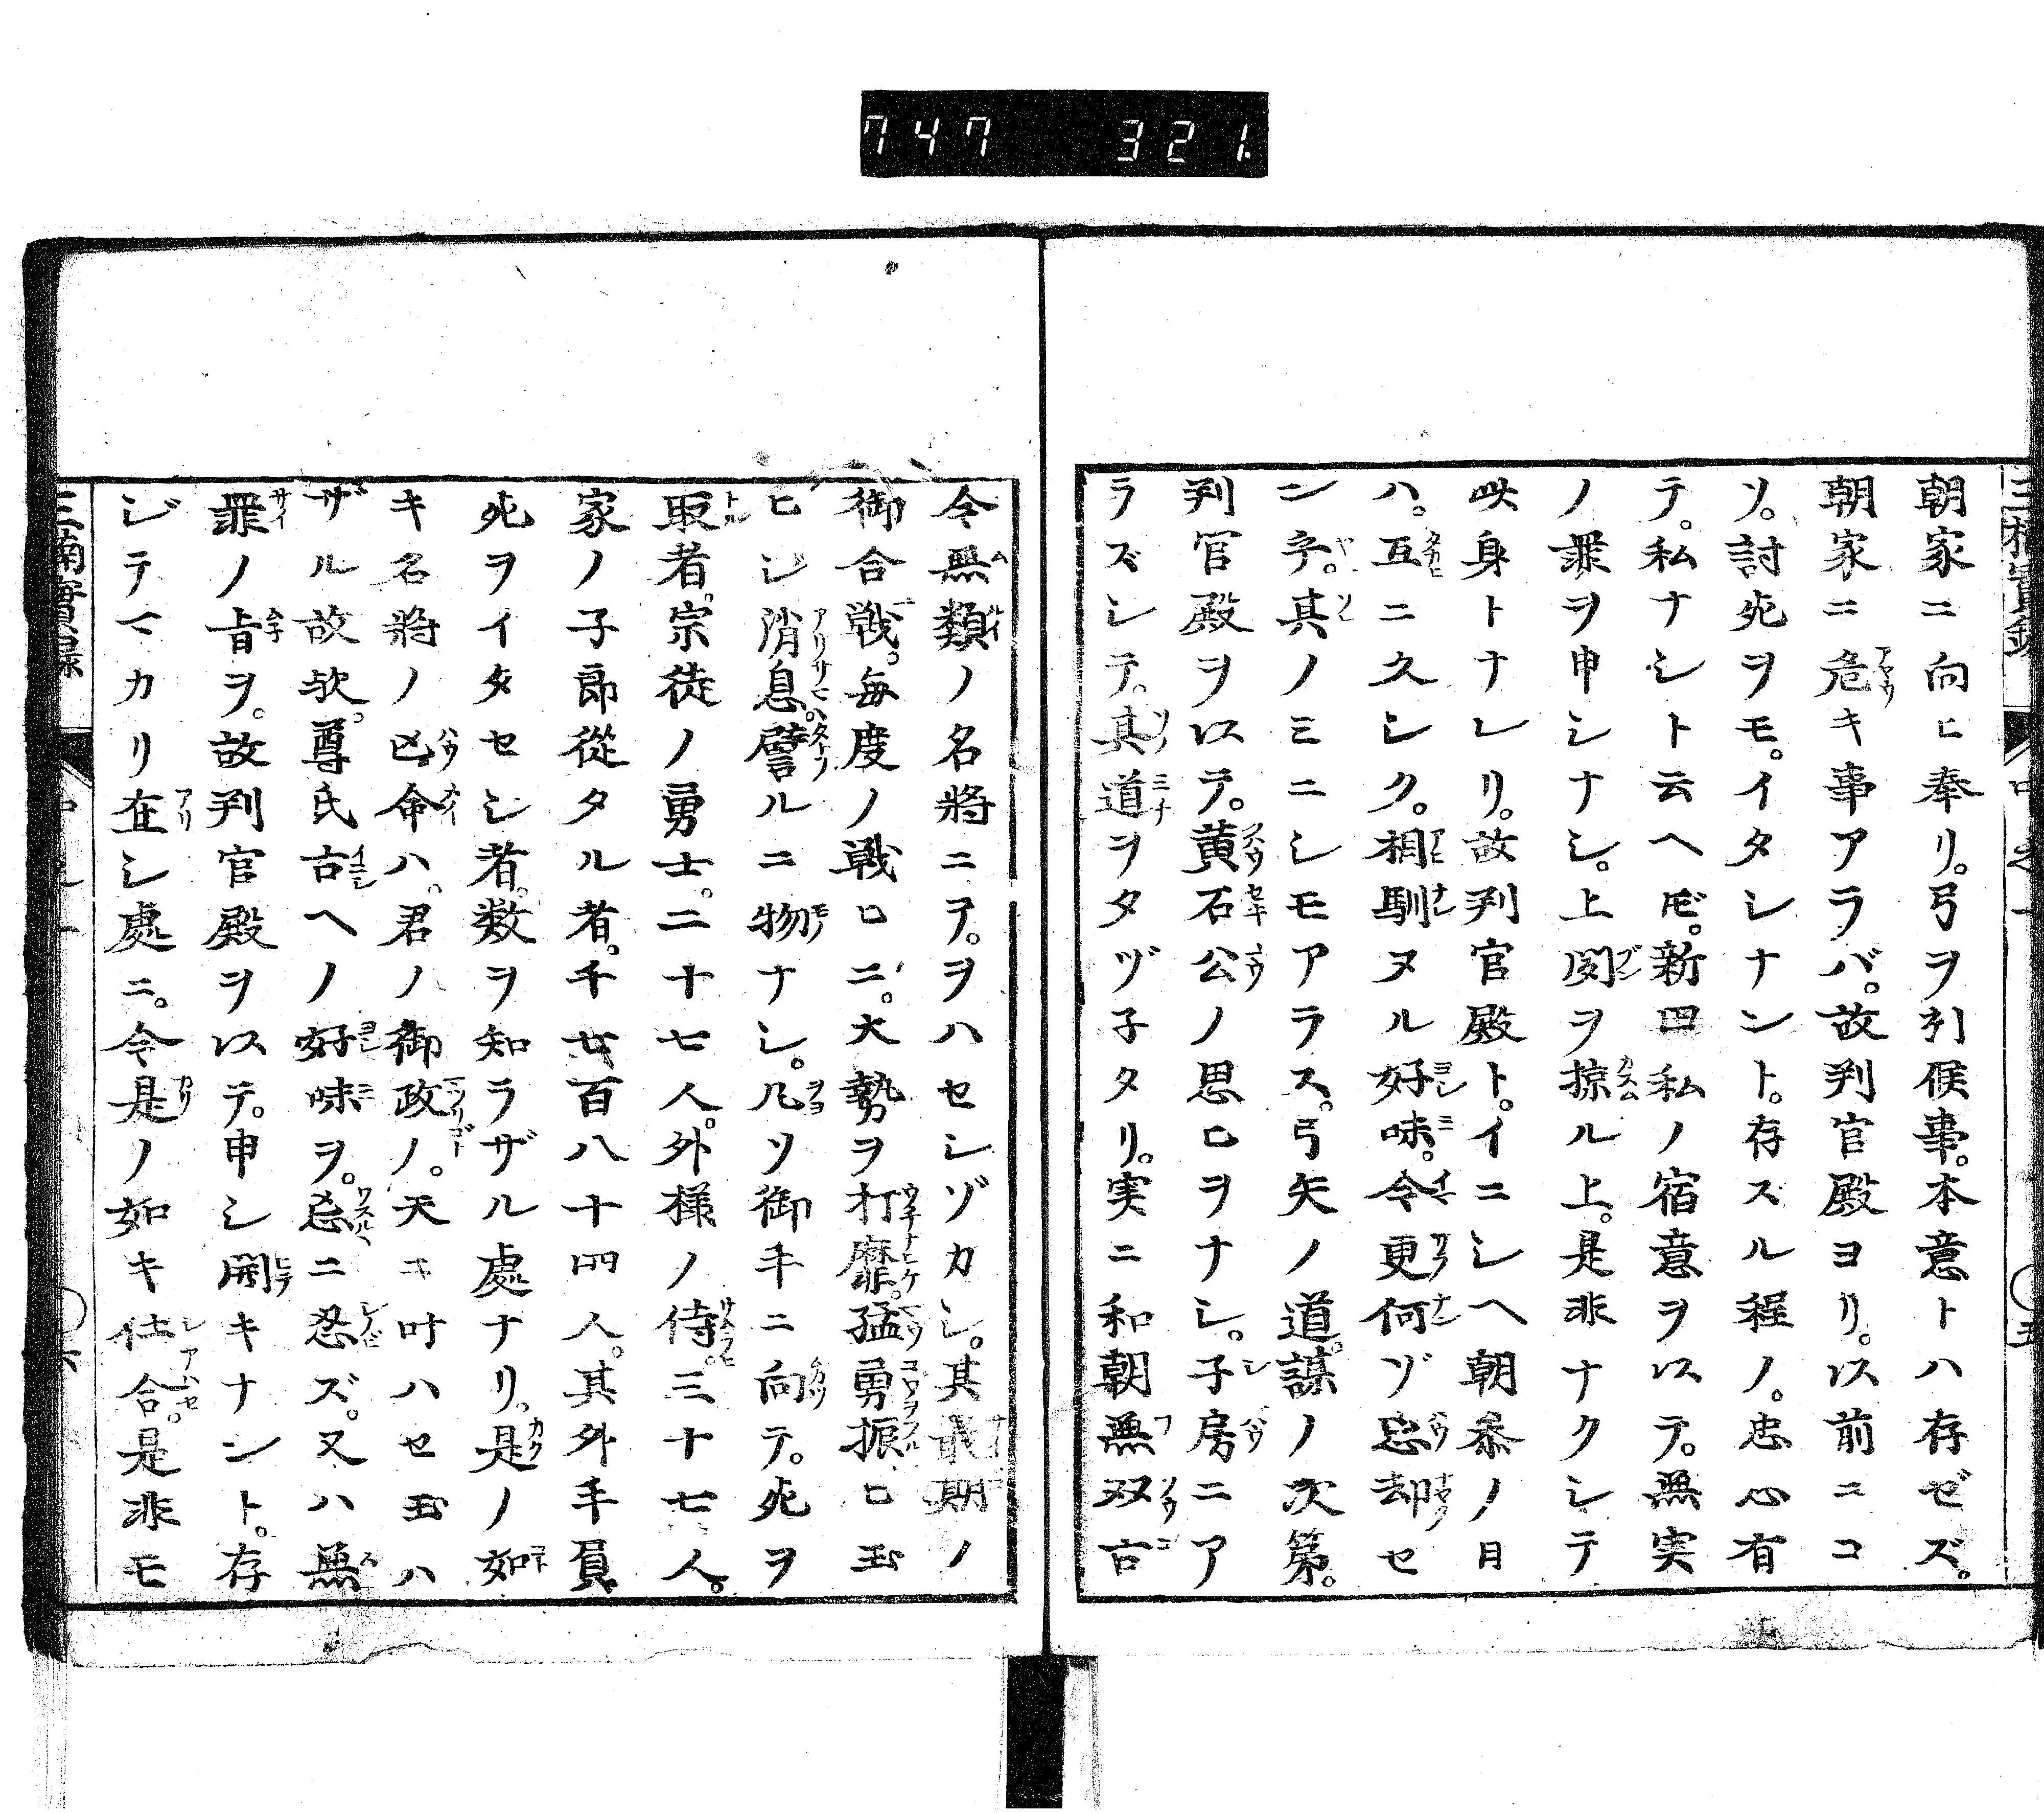 747 321.
朝家ニ向ヒ奉リ。弓ヲ引候事。本意トハ存ゼズ。
朝家ニ危キ事アラバ。故判官殿ヨリ。以前ニコ
ソ。討死ヲモ。イタシナント。存ズル程ノ。忠心有
テ。私ナシト云ヘ𪜈。新田私ノ宿意ヲ以テ。無実
ノ罪ヲ申シナシ。上聞ヲ掠ル上。是非ナクシテ
此身トナレリ。故判官殿ト。イニシヘ朝参ノ日
ハ。互ニ久シク。相馴ヌル好味。今更何ゾ忘却セ
ン乎。其ノミニシモアラス。弓矢ノ道。謀ノ次第。
判官殿ヲ以テ。黄石公ノ思ヒヲナシ。子房ニア
ラズシテ。其道ヲタヅ子タリ。実ニ和朝無双古
今無類ノ名將ニテ。ヲハセシゾカシ。其最期ノ
御合戦。毎度ノ戦ヒニ。大勢ヲ打靡。猛勇振ヒ玉
ヒシ消息。譬ルニ物ナシ。凡ソ御手ニ向テ。死ヲ
取者。宗徒ノ勇士。二十七人。外様ノ侍。三十七人。
家ノ子郎從タル者。千七百八十四人。其外手負
死ヲイタセシ者。数ヲ知ラザル處ナリ。是ノ如
キ名將ノ亡命ハ。君ノ御政ノ。天ニ叶ハセ玉ハ
ザル故歟。尊氏古ヘノ好味ヲ。忘ニ忍ビズ。又ハ無
罪ノ旨ヲ。故判官殿ヲ以テ。申シ開キナント。存
ジテマカリ在シ處ニ。今是ノ如キ仕合。是非モ